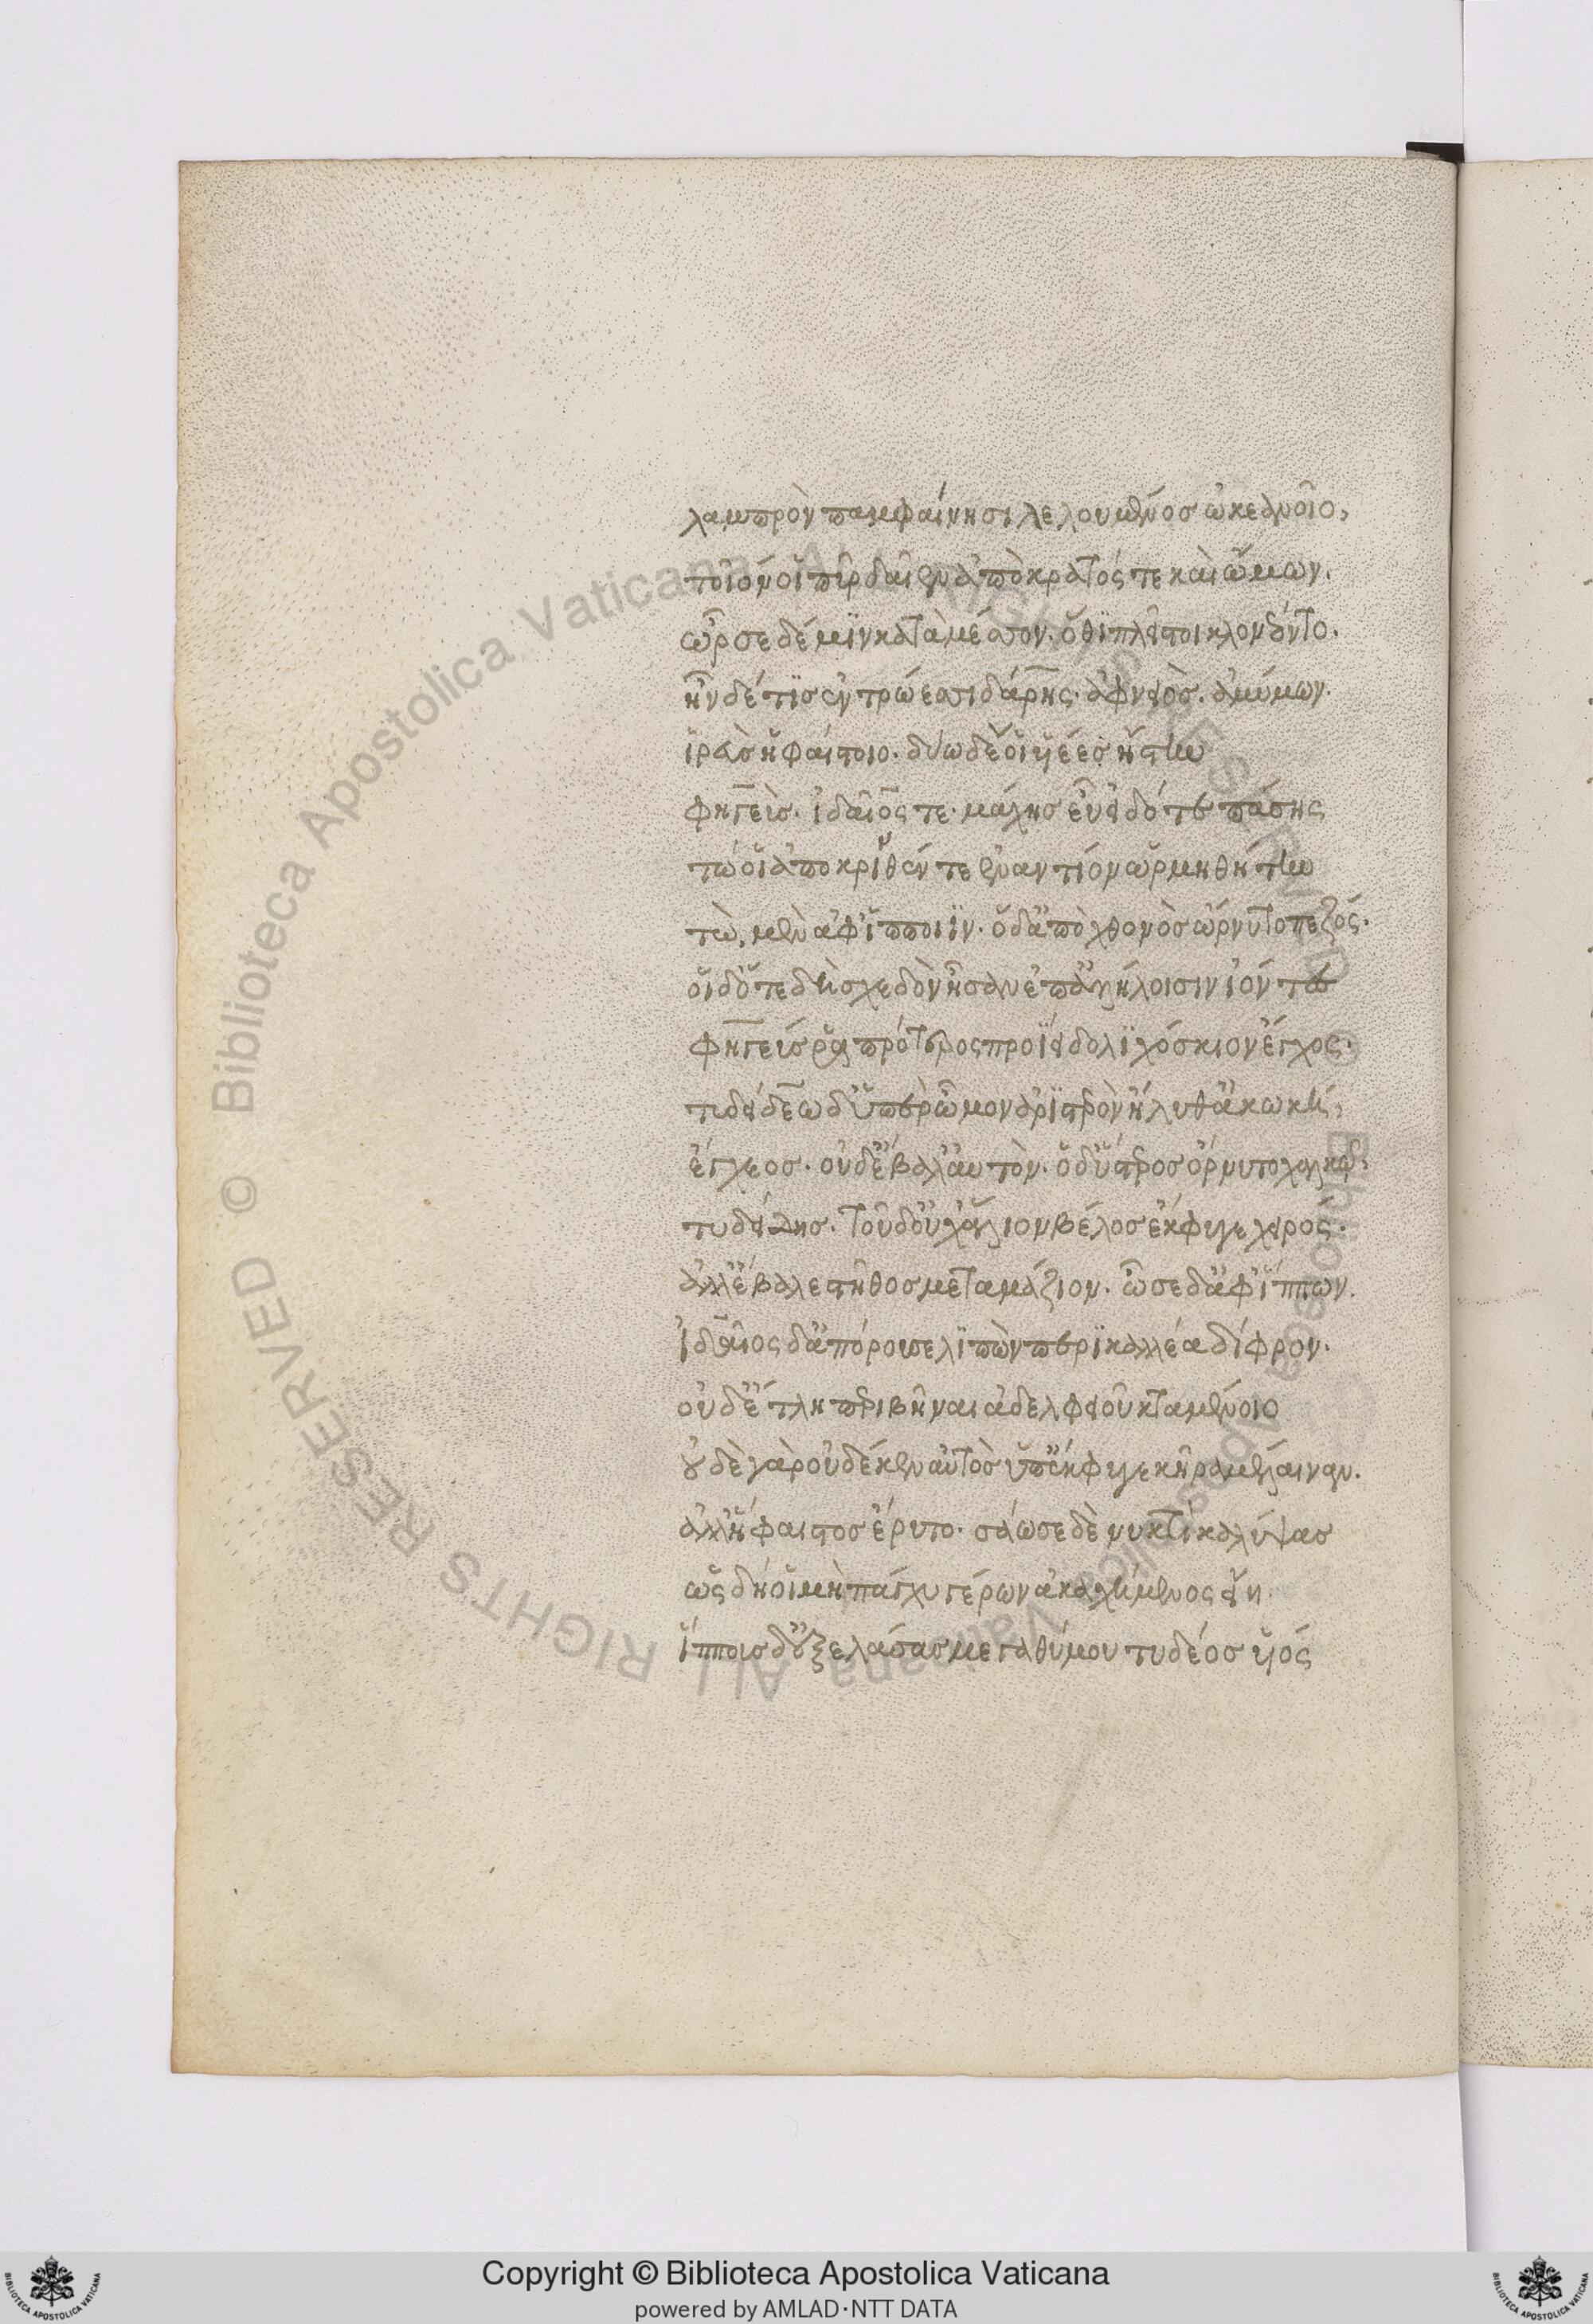 λαμπρὸν παμφαίνησι λελουμένος ὠκεανοῖο,
τοῖόν οἱ πῦρ δαῖεν ἀπὸ κρατός τε καὶ ὤμων.
ὦρσε δέ μϊν κατὰ μέσσον. ὅθϊ πλεῖστοι κλονέοντο.
ἦν δέ τϊς ἐν τρώεσσι δάρης· ἀφνειὸς. ἀμύμων.
ἱρεὺσ ἡφαίστοιο. δύω δέ οἱ υἱέεσ ἤστην
φηγεὺσ. ἰδαῖός τε. μάχησ εὖ εἰδότε πάσης
τώ οἱ ἀποκρϊθέντε ἐναντίον ὡρμηθήτην
τὼ, μὲν ἀφ' ἵπποιϊν. ὁ δ' ἀπὸ χθονὸσ ὤρνυτο πεζός.
οἱ δ' ὅτε δὴ σχεδὸν ἦσαν ἐπ' ἀλλήλοισιν ἰόντες
φηγεύς ῥα πρότερος προΐει δολϊχόσκιον ἔγχος.
τυδείδεω δ' ὑπὲρ ὦμον ἀρϊστερὸν ἤλυθ' ἀκωκή,
ἔγχεοσ. οὐδ' ἔβαλ' αὐτὸν. ὁ δ' ὕστεροσ ὄρνυτο χαλκῷ,
τυδείδησ. τοῦ δ' οὐχ' ἅλιον βέλοσ ἔκφυγε χειρός.
ἀλλ' ἔβαλε στῆθοσ μεταμάζιον. ὦσε δ' ἀφ' ἵππων.
ἰδαῖος δ' ἀπόρουσε λϊπὼν περϊκαλλέα δίφρον.
οὐδ' ἔτλη περιβῆναι ἀδελφειοῦ κταμένοιο
οὐδὲ γὰρ οὐδέ κεν αὐτὸσ ὑπέκφυγε κῆρα μέλαιναν.
ἀλλ' ἥφαιστοσ ἔρυτο. σάωσε δὲ νυκτὶ καλύψασ
ὡς δή οἱ μὴ πάγχυ γέρων ἀκαχήμενος εἴη.
ἵππουσ δ' ἐξελάσασ μεγαθύμου τυδέοσ υἱός
Copyright © Biblioteca Apostolica Vaticana
powered by AMLAD·NTT DATA
© Biblioteca Apostolica Vaticana ALL RIGHTS RESERVED